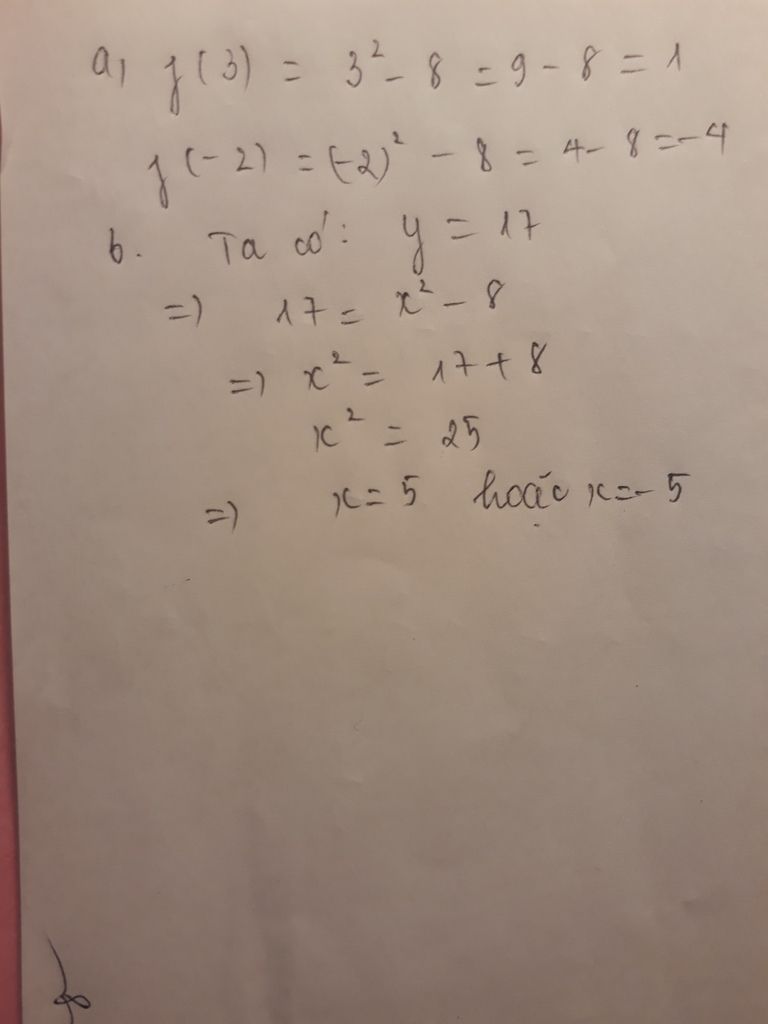 a, f(3) = 3² - 8 = 9 - 8 = 1
f(-2) = (-2)² - 8 = 4 - 8 = -4
b. Ta có: y = 17
=) 17 = x² - 8
=) x² = 17 + 8
x² = 25
=) x = 5 hoặc x = -5